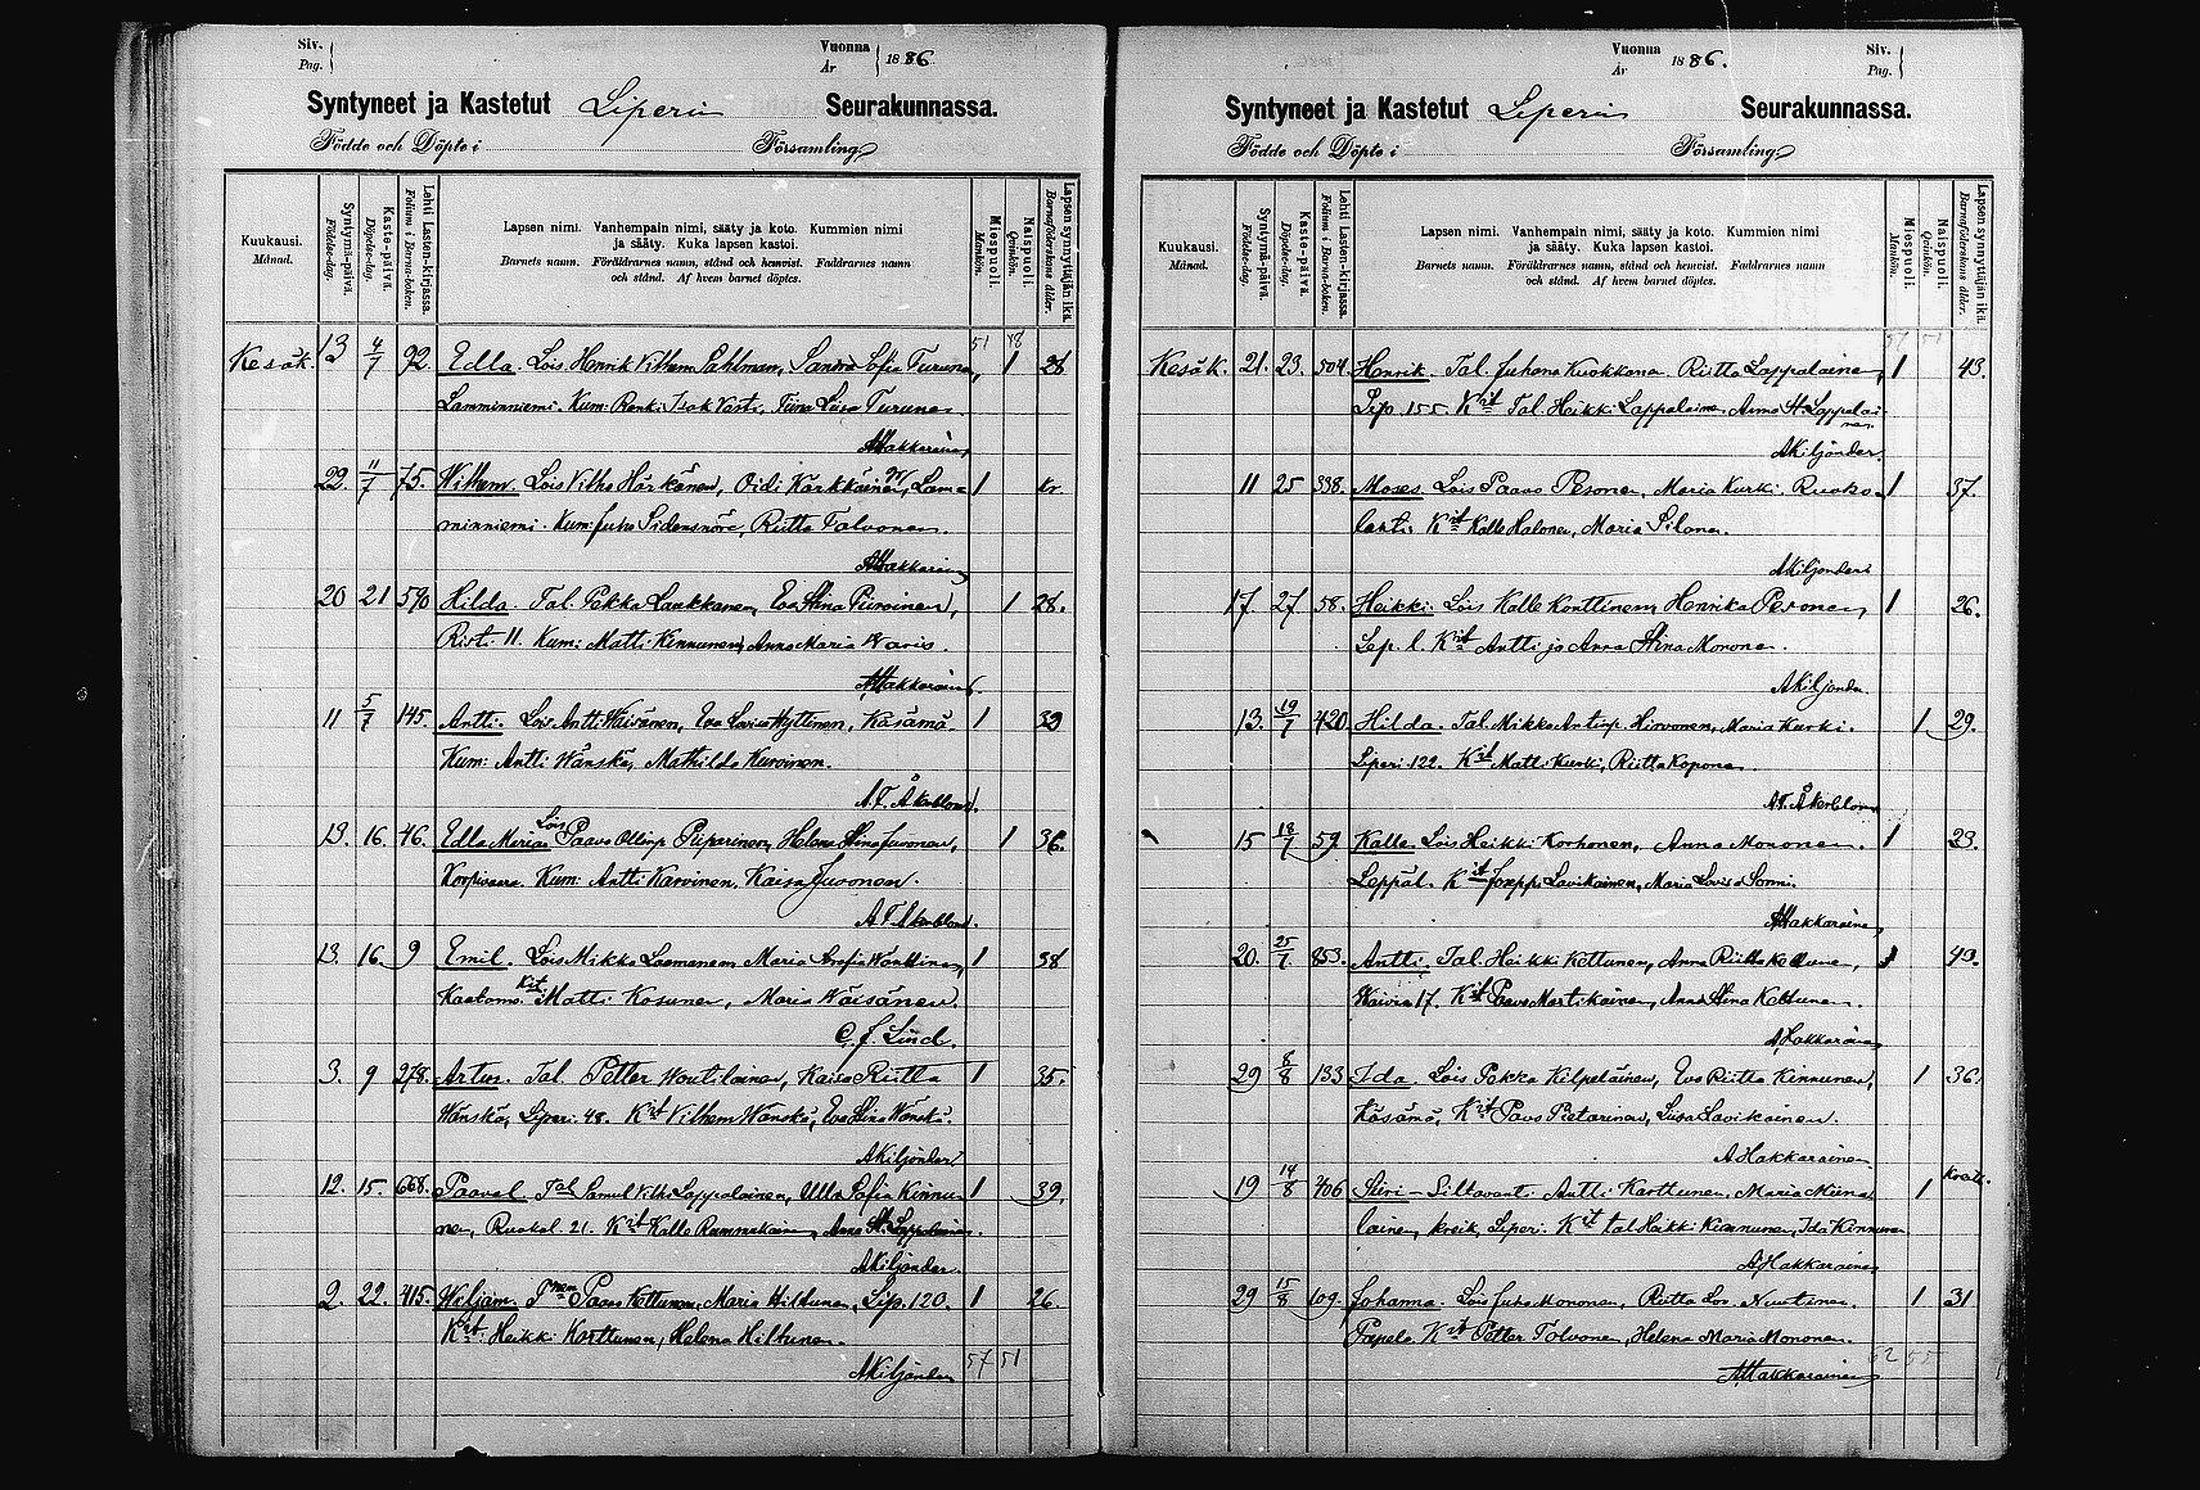 Siv.
Pag.
Vuonna
År
1886
Syntyneet ja Kastetut Liperin Seurakunnassa.
Födde och Döpte i Församling
Kuukausi.
Månad.
Syntymä-päivä.
Födelse-dag.
Kaste-päivä.
Döpelse-dag.
Lehti Lasten-kirjassa.
Folium i Barna-boken.
Lapsen nimi. Vanhempain nimi, sääty ja koto. Kummien nimi
ja sääty. Kuka lapsen kastoi.
Barnets namn. Föräldrarnes namn, stånd och hemvist. Faddrarnes namn
och stånd. Af hvem barnet döptes.
Miespuoli.
Mankön.
Naispuoli.
Qvinkön.
Lapsen synnyttäjän ikä.
Barnaföderskans ålder.
51 48
Kesäk. 13 4/7 92. Edla. Lois Henrik Vilhem Sahlman, Sandra Sofia Turunen, 1 28
Lamminniemi. Kum: Renki Isak Vasti, Tiina Liisa Turunen
AHakkarainen
22. 11/7 75. Wilhem. Lois Vilho Härkönen, Oidi Karkkainen, Lam= 1 kr.
minniemi. Kum: Juho Sidensnöre, Riitta Tolvonen.
AHakkarainen
20 21 590 Hilda. Tal. Pekka Laukkanen, Eva Stina Piiroinen, 1 28.
Risti 11. Kum: Matti Kinnunen, Anna Maria Waris.
AHakkarainen.
11 5/7 145. Antti. Lois Antti Wäisänen, Eva Lovisa Hyttinen, Käsämä. 1 39
Kum: Antti Wänskä, Mathilda Kurvinen.
A.F. Åkerblom.
13. 16. 46. Edla Maria Lois Paavo Ollinp. Piiparinen, Helena Stina Juvonen, 1 36.
Korpivaara. Kum: Antti Karvinen, Kaisa Juvonen.
A.F. Åkerblom.
13. 16. 9 Emil. Lois Mikko Laamanen Maria Wänttinen, 1 38
Kaatamo. Kit Matti Kosunen, Maria Wäisänen.
C. J. Lind.
3. 9 278. Artur. Tal. Petter Woutilainen, Kaisa Riitta 1 35.
Wänskä, Liperi 48. Kit Vilhem Wänskä, Eva Stina Wänskä.
AKiljander
12. 15. 668. Paaval. Tal Samul Vilh. Lappalainen, Ulla Sofia Kinnu- 1 39.
nen, Ruokol. 21. Kit Kalle Rummukainen, Anna St. Lappalainen.
AKiljander.
2. 22. 415. Wiljam. Paavo Kettunen, Maria Hiltunen, Lip. 120. 1 26.
Kit: Heikki Karttunen, Helena Hiltunen.
AKiljander
57 51
Vuonna
År
1886.
Siv.
Pag.
Syntyneet ja Kastetut Liperin Seurakunnassa.
Födde och Döpte i Församling
Kuukausi.
Månad.
Syntymä-päivä.
Födelse-dag.
Kaste-päivä.
Döpelse-dag.
Lehti Lasten-kirjassa.
Folium i Barna-boken.
Lapsen nimi. Vanhempain nimi, sääty ja koto. Kummien nimi
ja sääty. Kuka lapsen kastoi.
Barnets namn. Föräldrarnes namn, stånd och hemvist. Faddrarnes namn
och stånd. Af hvem barnet döptes.
Miespuoli.
Mankön.
Naispuoli.
Qvinkön.
Lapsen synnyttäjän ikä.
Barnaföderskans ålder.
57 51
Kesäk. 21. 23. 504. Henrik. Tal. Juhana Kuokkanen Riitta Lappalainen, 1 43.
Lip. 155. Kit Tal. Heikki Lappalainen Anna St. Lappalai-
nen.
AKiljander.
11 25 338. Moses. Lois Paavo Pesonen, Maria Kurki. Ruoko- 1 37.
lahti. Kit Kalle Halonen, Maria Silonen.
AKiljander
17. 27 58. Heikki. Lois Kalle Konttinen, Henrika Pesonen, 1 26.
Lep. l. Kit Antti ja Anna Stina Mononen.
AKiljander.
13. 19/7 420. Hilda. Tal. Mikko Antinp. Hirvonen, Maria Kurki. 1 29.
Liperi 122. Kit Matti Kurki, Riitta Koponen.
A.F. Åkerblom
15 18/7 59. Kalle. Lois Heikki Korhonen, Anna Mononen. 1 23.
Leppäl. Kit Joseppi Lavikainen, Maria Lovisa Sonni.
AHakkarainen
20. 25/7. 853. Antti. Tal. Heikki Kettunen, Anna Riitta Kettunen, 1 43.
Waivio 17. Kit Paavo Martikainen, Anna Stina Kettunen.
AHakkarainen
29 8/8 133 Ida. Lois Pekka Kilpeläinen, Eva Riitta Kinnunen, 1 36.
Käsämä, Kit Paavo Pietarinen, Liisa Lavikainen.
AHakkarainen.
19 14/8 406 Siiri - Siltavouti Antti Karttunen, Maria Miina 1 kreik.
lainen, kreik, Liperi. Kit tal Heikki Kinnunen, Ida Kinnunen
AHakkarainen
29 15/8 109. Johanna. Lois Juho Mononen, Riitta Lov. Nuutinen. 1 31
Papelo. Kit Petter Tolvonen, Helena Maria Mononen.
AHakkarainen
62 55